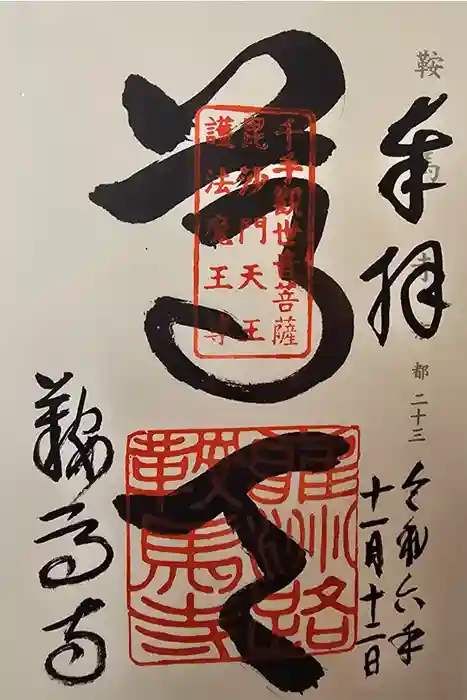 鞍馬寺
都二十三
奉拝
令和六年
十一月十二日
尊天
千手観世音菩薩
毘沙門天王
護法魔王尊
鞍馬寺
鞍馬寺